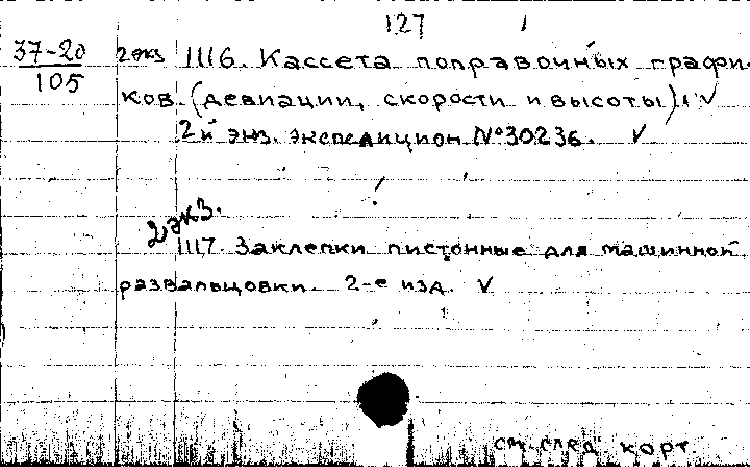 127
37-20 2 экз 1116. Кассета поправочных графи-
105
ков. (девиации, скорости и высоты). ✓
2й экз. экспедицион № 30236. ✓
2 экз.
1117. Заклепки пистонные для машинной
развальцовки. 2-е изд. ✓
см. след. корт.